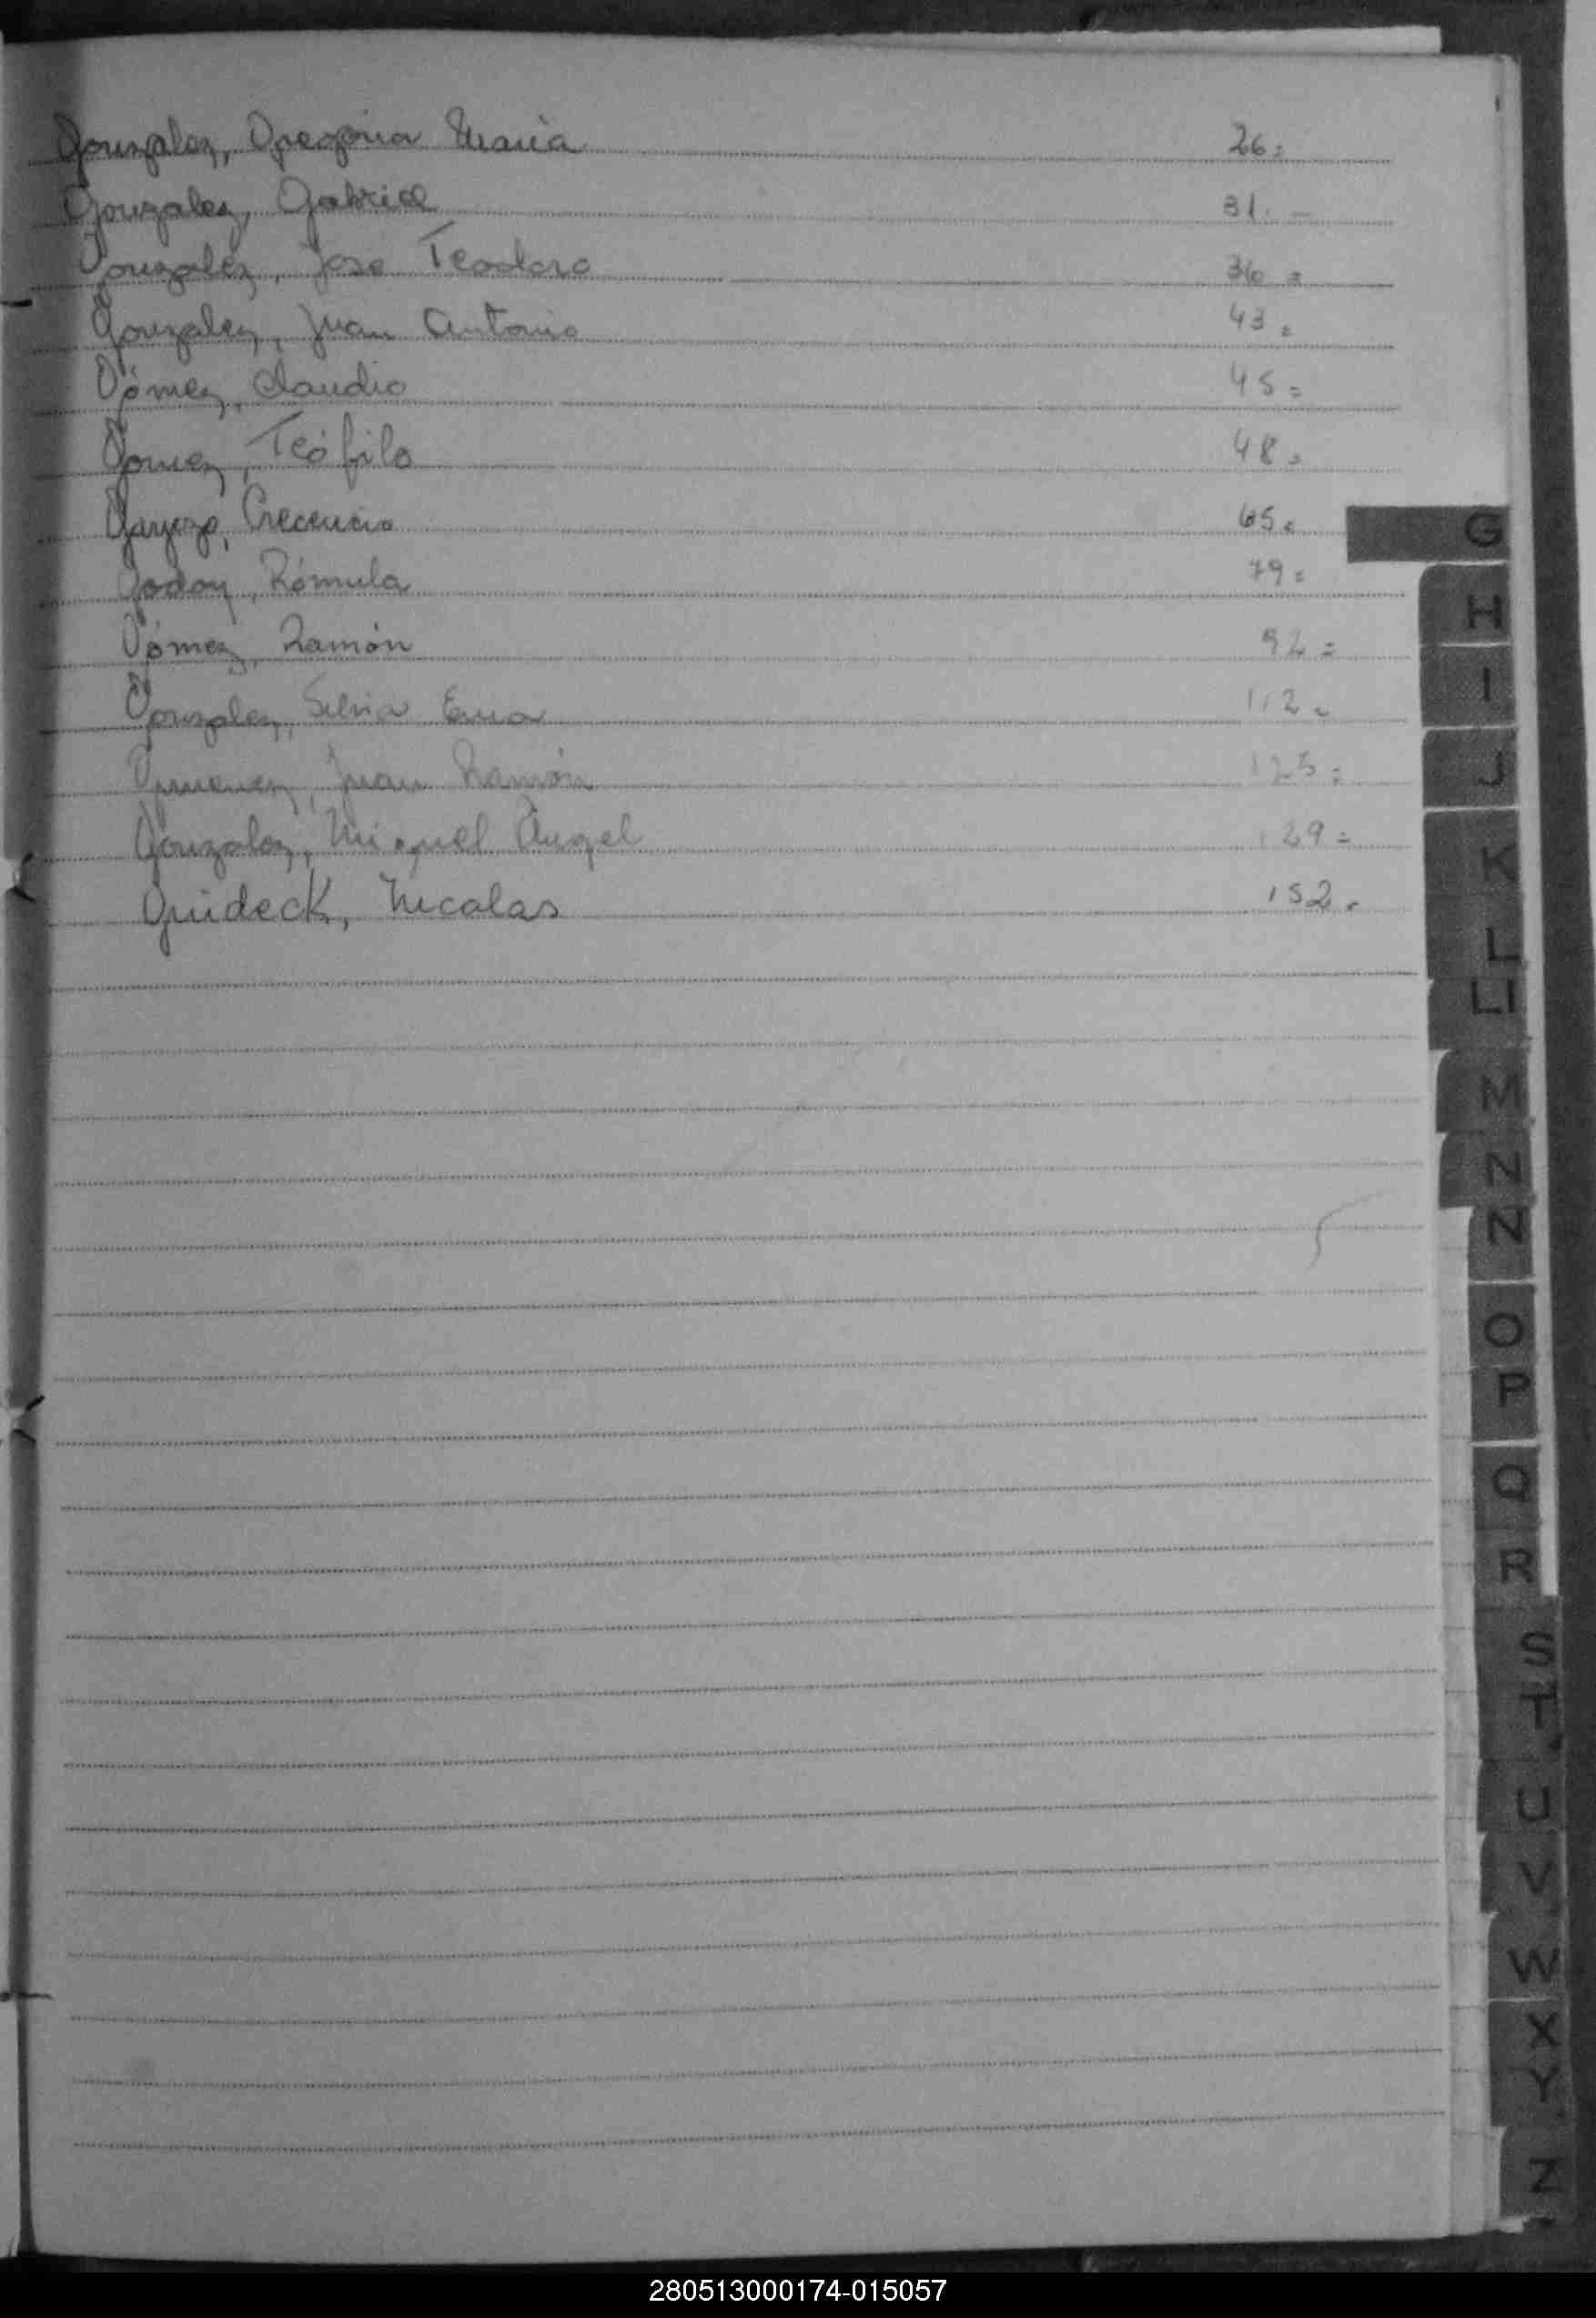 Gonzalez, Gregoria Maria 26=
Gonzalez, Gabriel 31. —
Gonzalez, Jose Teodoro 36 =
Gonzalez, Juan Antonio 43 =
Gómez, Claudio 45 =
Gomez, Teófilo 48 =
Crecencio 65 =
Godoy, Rómula 79 =
Gómez, Ramón 92 =
Gonzalez, Silvia Ema 112 =
Gimenez, Juan Ramón 125 =
Gonzalez, Miguel Angel 129 =
Guideck, Nicolas 152 =
G
H
I
J
K
L
Ll
M
N
Ñ
O
P
Q
R
S
T
U
V
W
X
Y
Z
280513000174-015057